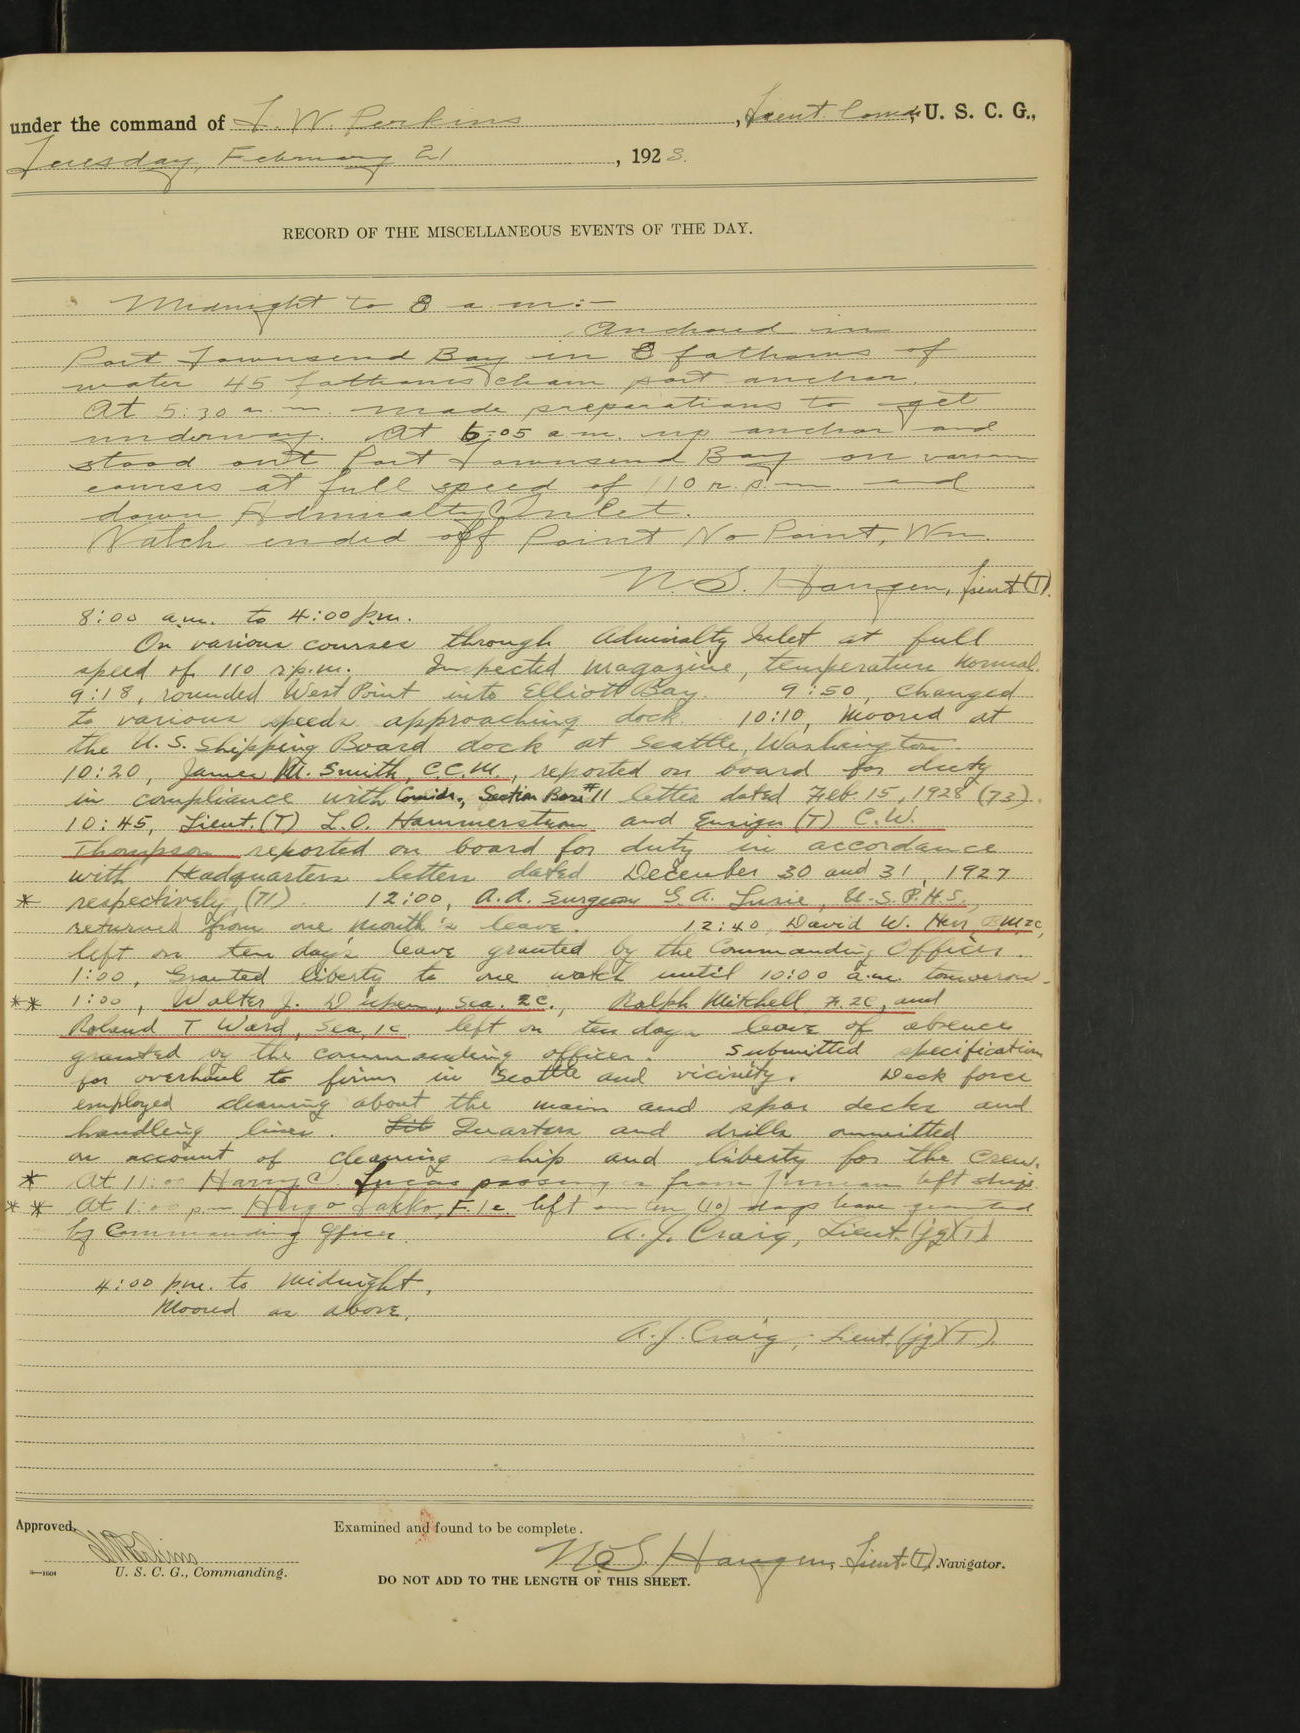 under the command of L. W. Perkins, Lieut. Comdr, U. S. C. G.,
Tuesday, February 21, 1928.
RECORD OF THE MISCELLANEOUS EVENTS OF THE DAY.
Midnight to 8 a.m:-
Anchored in
Port Townsend Bay in 8 fathoms of
water 45 fathoms chain port anchor.
At 5:30 a.m. made preparations to get
underway. At 6:05 a.m. up anchor and
stood out Port Townsend Bay on various
courses at full speed of 110 r.p.m. and
down Admiralty Inlet.
Watch ended off Point No Point, Wn.
N. S. Haugen, Lieut (T).
8:00 a.m. to 4:00 p.m.
On various courses through Admiralty Inlet at full
speed of 110 r.p.m. Inspected magazine, temperature normal.
9:18, rounded West Point into Elliott Bay. 9:50, changed
to various speeds approaching dock. 10:10, Moored at
the U. S. Shipping Board dock at Seattle, Washington.
10:20, James M. Smith, C.C.M., reported on board for duty
in compliance with Comdr., Section Base #11 letter dated Feb. 15, 1928 (73).
10:45, Lieut. (T) L.O. Hammerstrom and Ensign (T) C.W.
Thompson reported on board for duty in accordance
with Headquarters letters dated December 30 and 31, 1927
* respectively, (71). 12:00, A.A. Surgeon G.A. U.S.P.H.S.,
returned from one month's leave. 12:40, David W. 2c,
left on ten day's leave granted by the Commanding Officer.
1:00, Granted liberty to one watch until 10:00 a.m. tomorrow.
** 1:00, Walter J. Sea. 2c., Ralph Mitchell, F. 2c, and
Roland T Ward, Sea, 1c left on ten days leave of absence
granted by the commanding officer. Submitted specification
for overhaul to firms in Seattle and vicinity. Deck force
employed cleaning about the main and spar decks and
handling lines. Quarters and drills ommitted
on account of cleaning ship and liberty for the crew.
* At 11:00 Harry C. Lucas passenger from left ship.
** At 1:00 p.m. Hugo F.1c. left on ten (10) days leave granted
by Commanding Officer. A. J. Craig, Lieut. (jg)(T)
4:00 p.m. to Midnight.
Moored as above.
A. J. Craig, Lieut. (jg)(T).
Approved,
L W Perkins
U. S. C. G., Commanding.
Examined and found to be complete.
N. S. Haugen, Lieut. (T). Navigator.
DO NOT ADD TO THE LENGTH OF THIS SHEET.